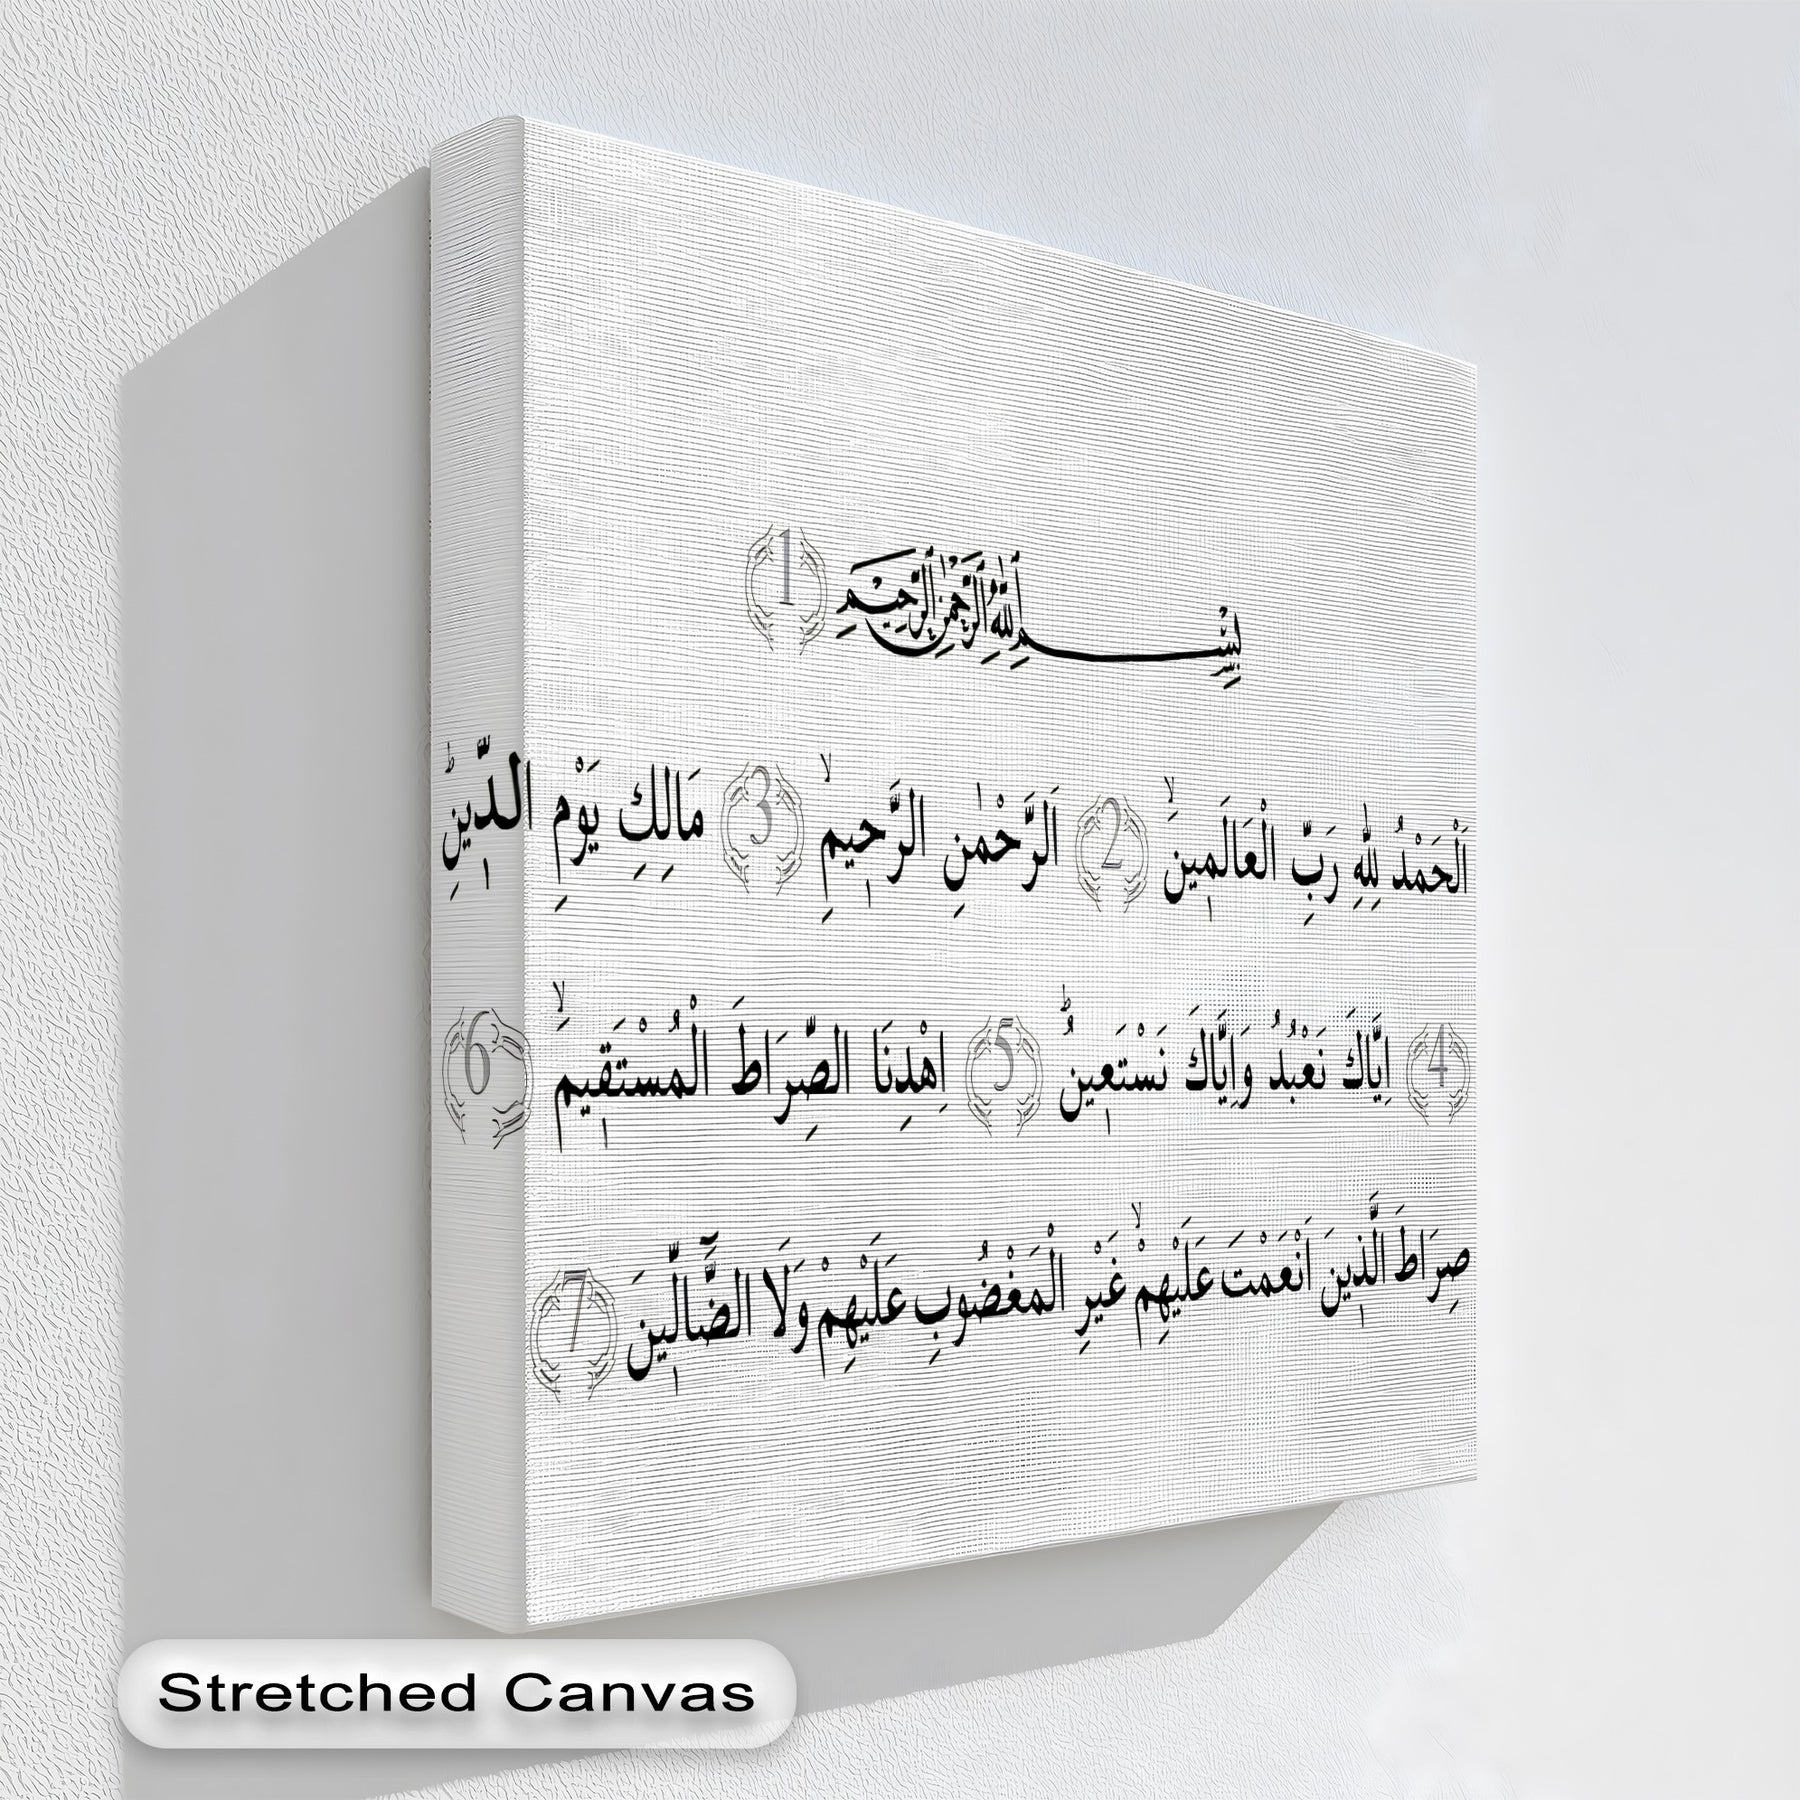 بِسْمِ اللّٰهِ الرَّحْمٰنِ الرَّحِيمِ 1
اَلْحَمْدُ لِلّٰهِ رَبِّ الْعَالَمِينَۙ 2 اَلرَّحْمٰنِ الرَّحِيمِۙ 3 مَالِكِ يَوْمِ الدِّينِۜ
4 اِيَّاكَ نَعْبُدُ وَاِيَّاكَ نَسْتَعِينُۜ 5 اِهْدِنَا الصِّرَاطَ الْمُسْتَقِيمَۙ 6
صِرَاطَ الَّذِينَ اَنْعَمْتَ عَلَيْهِمْۙ غَيْرِ الْمَغْضُوبِ عَلَيْهِمْ وَلَا الضَّٓالِّينَ 7
Stretched Canvas